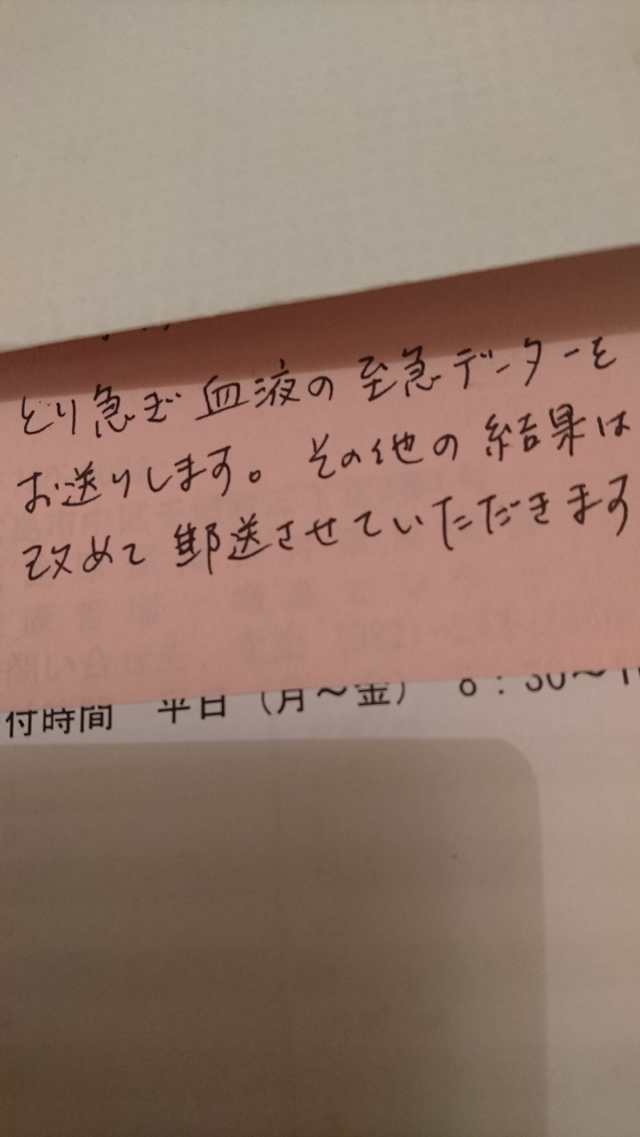 とり急ぎ 血液の至急データーを
お送りします。その他の結果は
改めて郵送させていただきます
付時間 平日(月～金) 8:30～